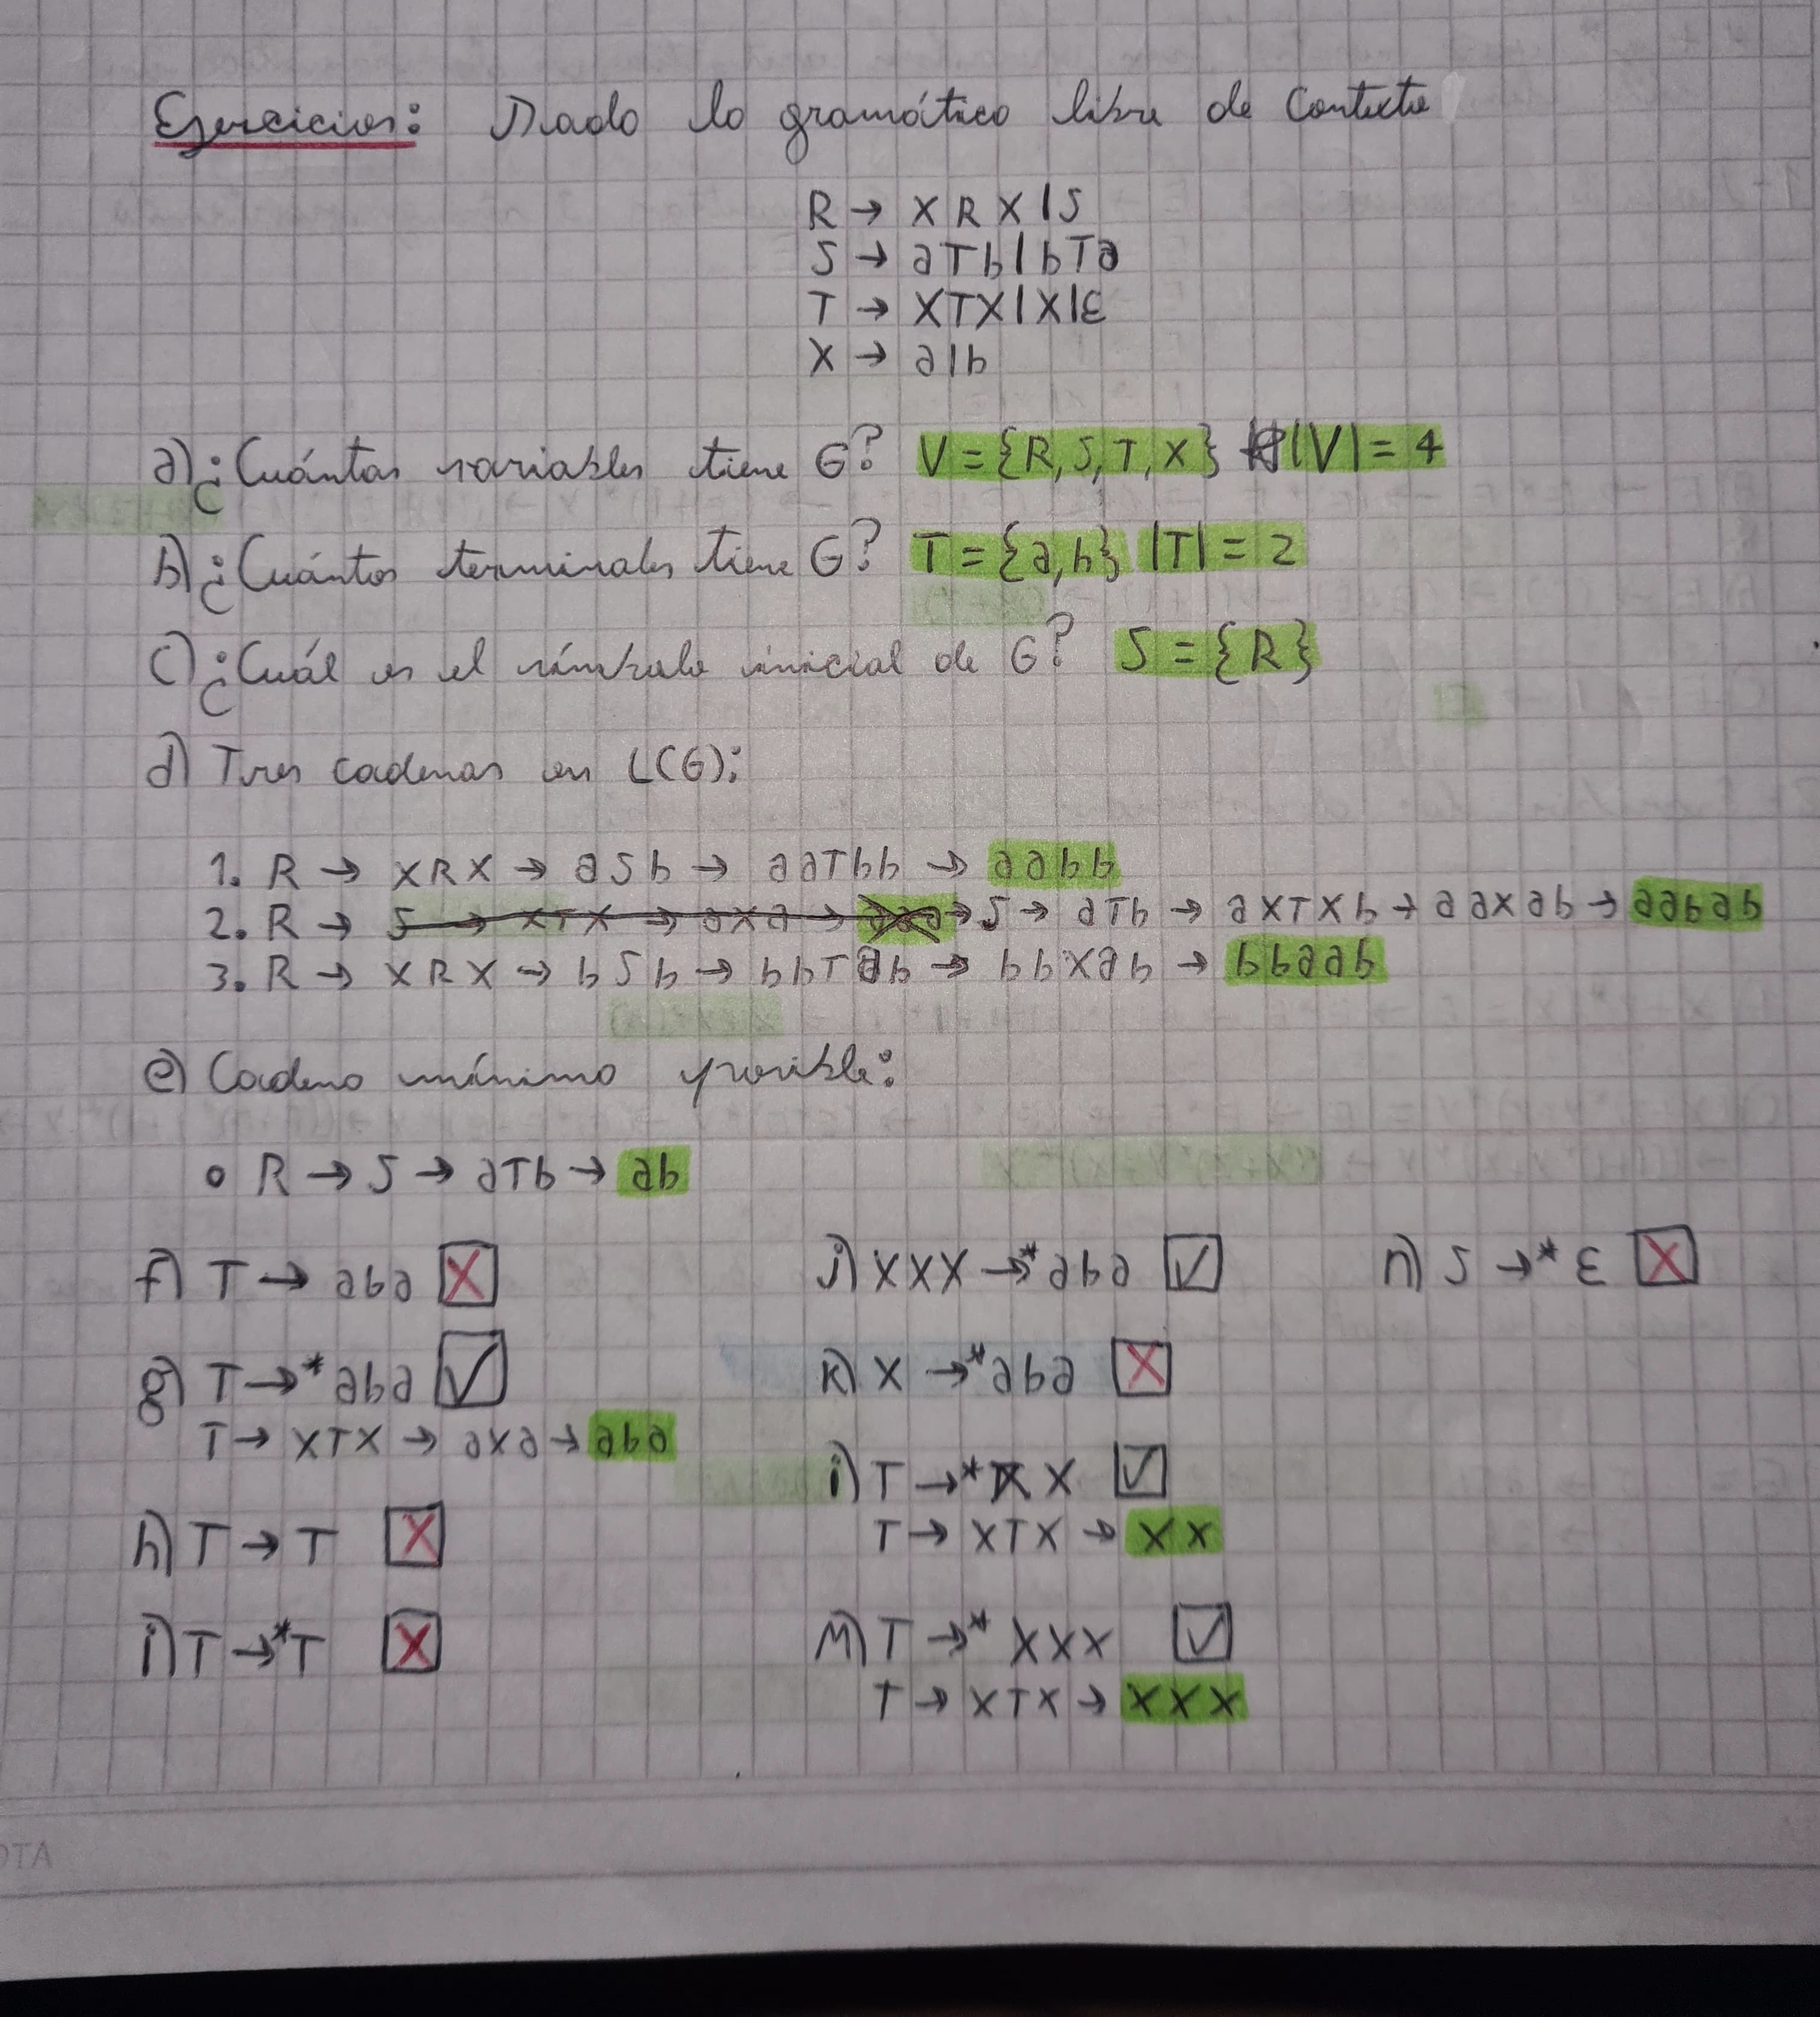 Ejercicios: Dada la gramática libre de Contexto
R → XRX|S
S → aTb|bTa
T → XTX|X|ε
X → a|b
a) ¿Cuántas variables tiene G? V = {R, S, T, X} |V| = 4
b) ¿Cuántos terminales tiene G? T = {a, b} |T| = 2
c) ¿Cuál es el símbolo inicial de G? S = {R}
d) Tres cadenas en L(G):
1. R → XRX → aSb → aaTbb → aabb
2. R → S → XTX → aXa → aaa → S → aTb → aXTXb → aaXab → aabab
3. R → XRX → bSb → bbTab → bbXab → bbaab
e) Cadena mínima posible:
R → S → aTb → ab
f) T → aba X
g) T →* aba ✓
T → XTX → aXa → aba
h) T → T X
i) T →* T X
j) XXX →* aba ✓
k) X →* aba X
l) T →* XX ✓
T → XTX → XX
M) T →* XXX ✓
T → XTX → XXX
n) S →* ε X